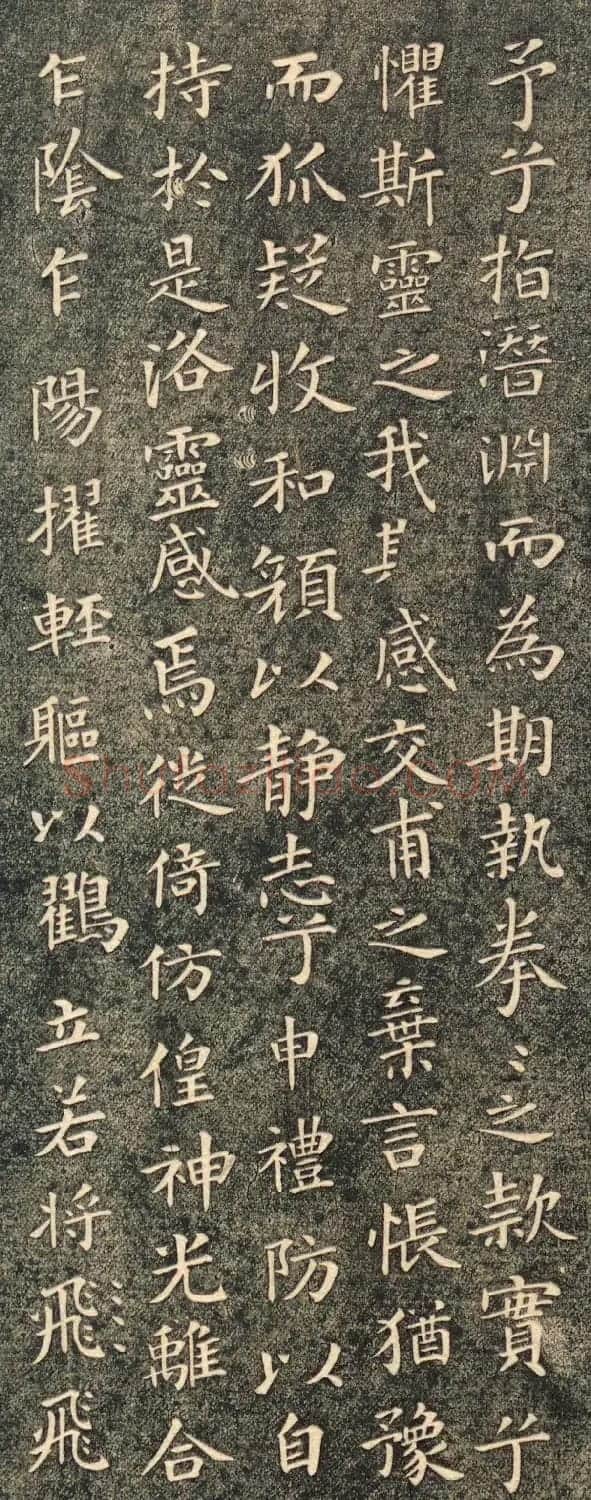 予兮指潛淵而為期執拳〻之款實兮
懼斯靈之我其感交甫之棄言悵猶豫
而狐疑收和顏以静志兮申禮防以自
持於是洛靈感焉徙倚仿偟神光離合
乍陰乍陽擢輕軀以鸛立若将飛飛